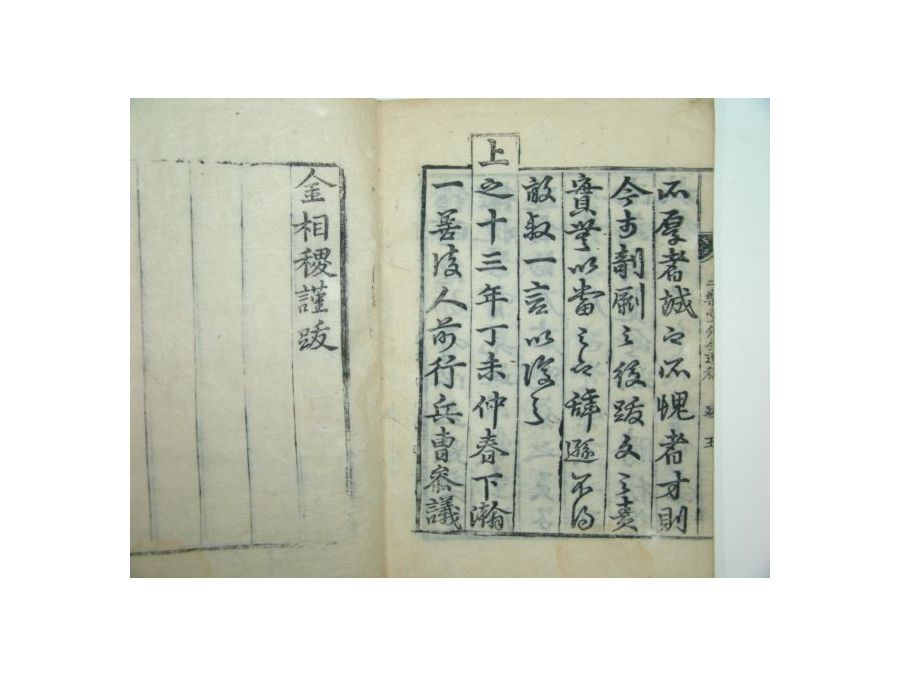 所厚者誠也所愧者才則
今於剞劂之後跋文之責
實無以當之也辭遜不得
敢叙一言以復之
上
之十三年丁未仲春下瀚
一善後人前行兵曹參議
金相稷謹跋